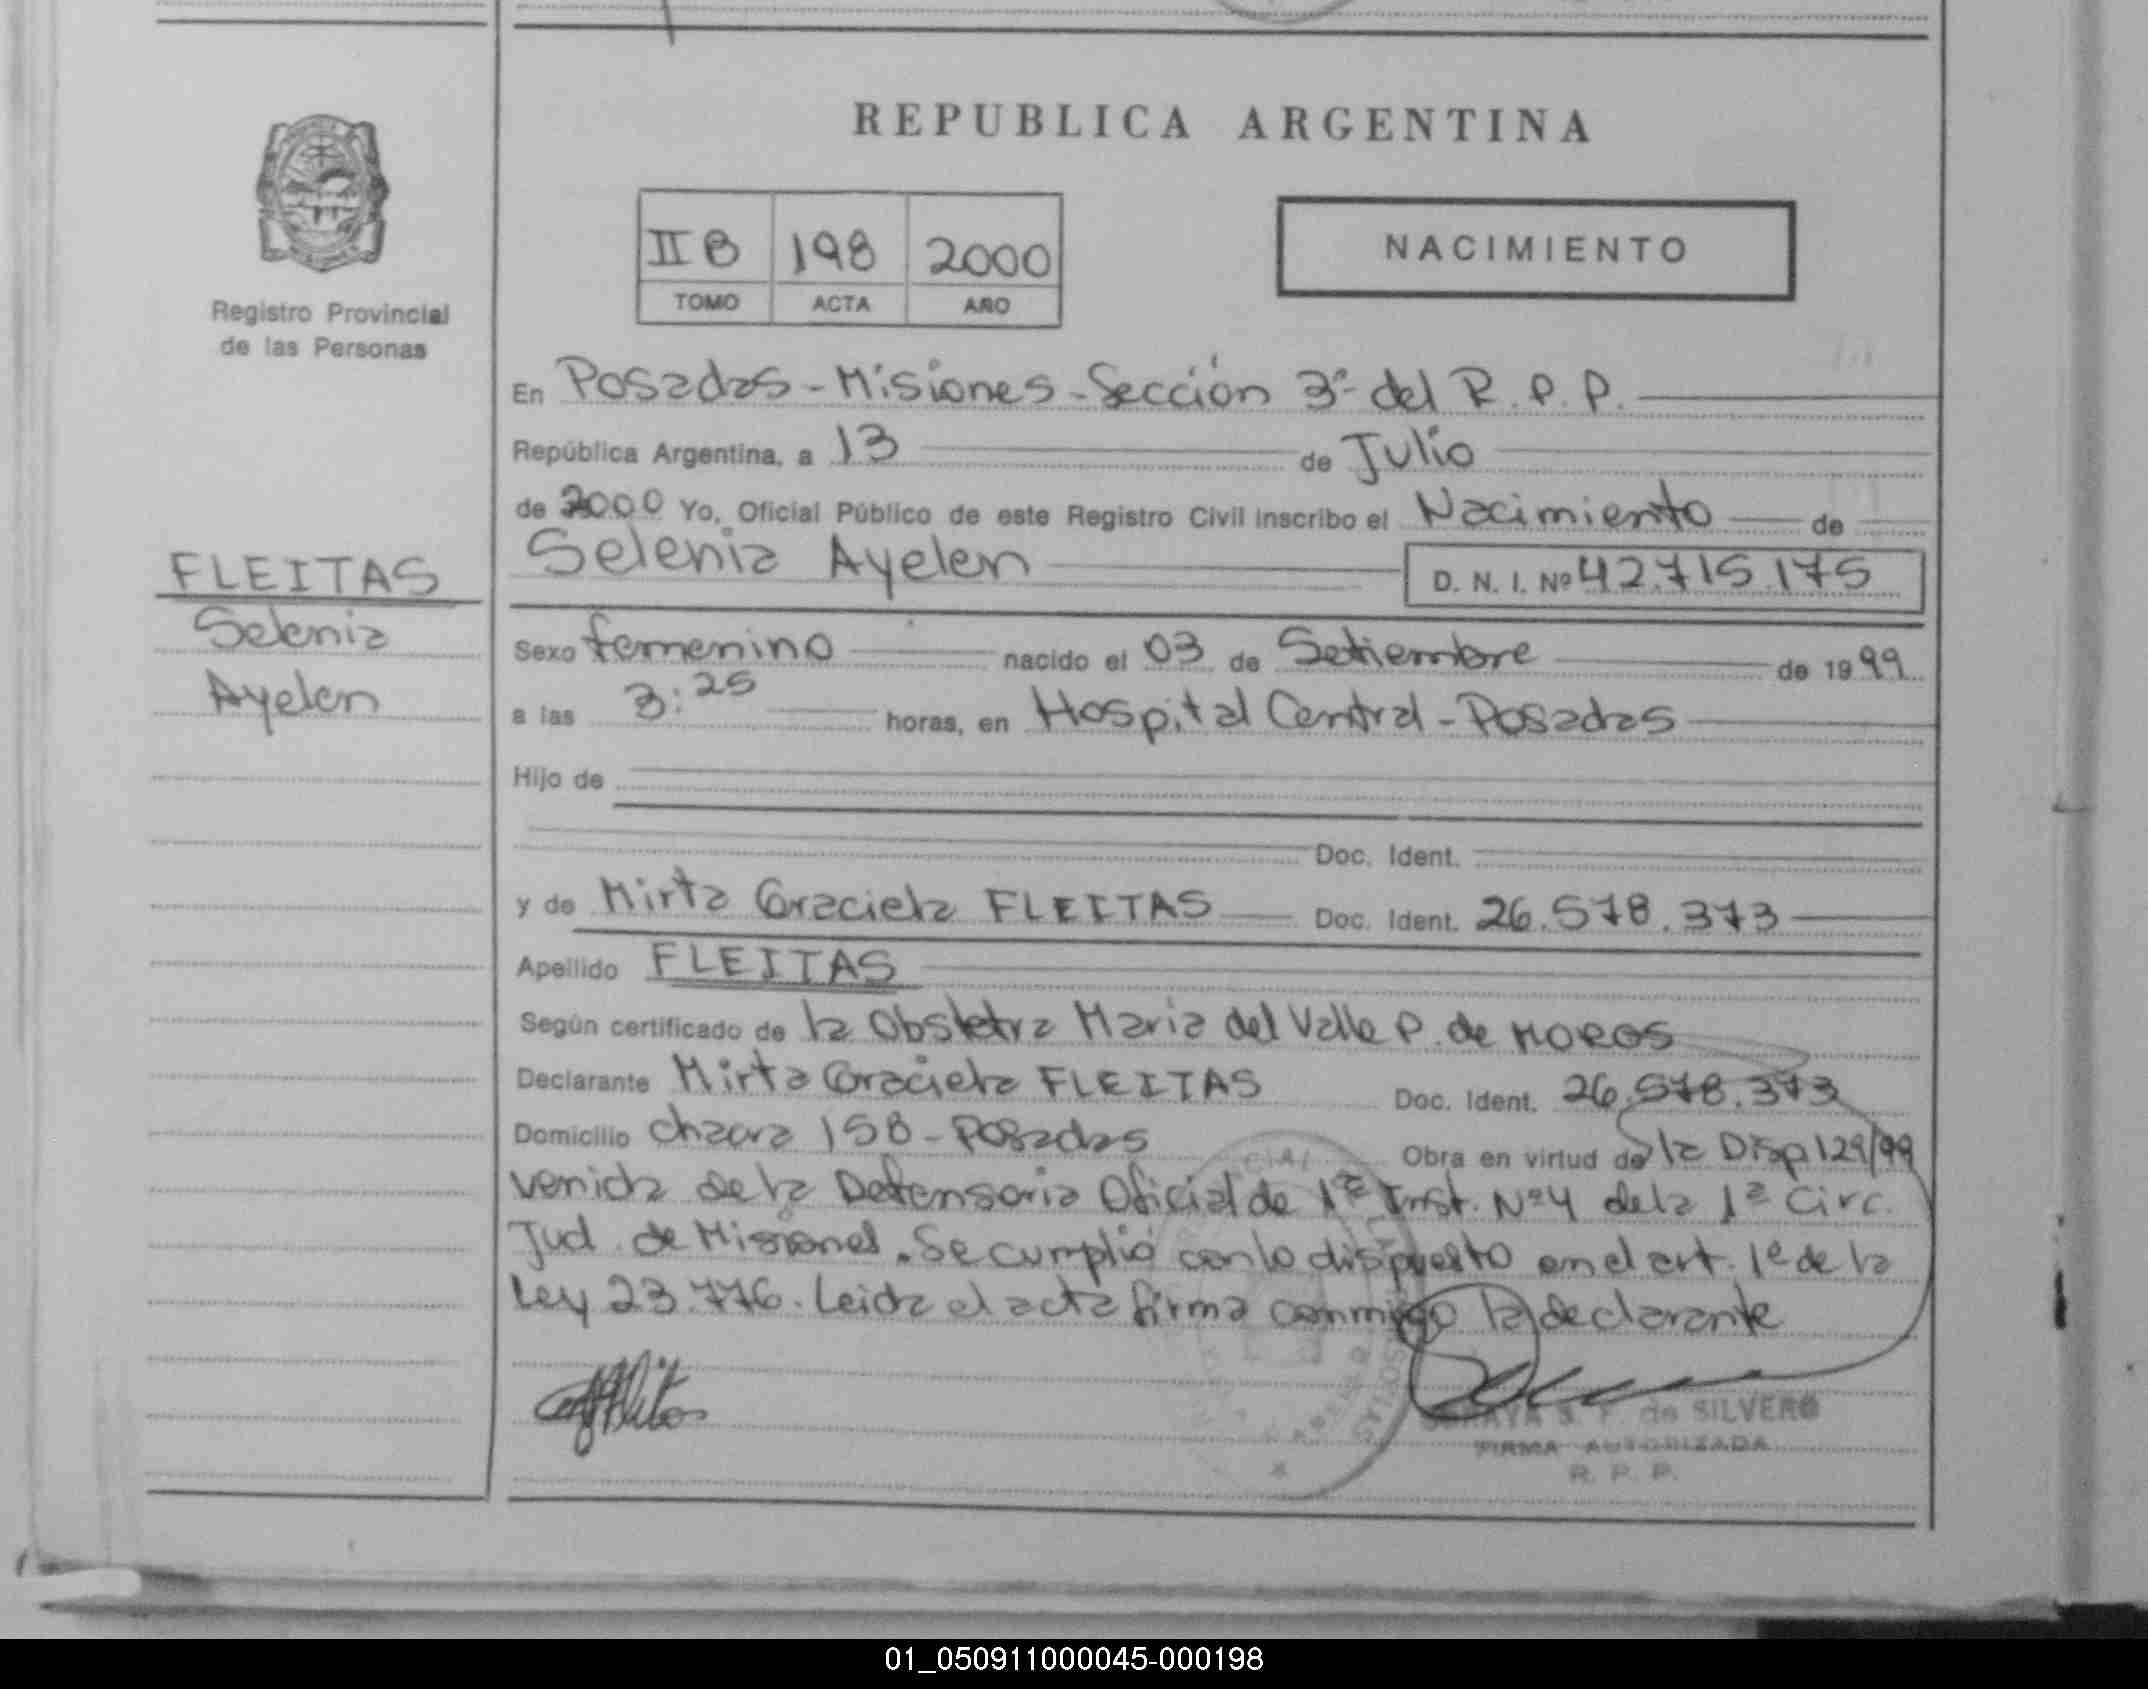 REPUBLICA ARGENTINA
II B 198 2000
TOMO ACTA AÑO
NACIMIENTO
Registro Provincial
de las Personas
FLEITAS
Selenia
Ayelen
En Posadas - Misiones - Sección 3ª del R. P. P.
República Argentina, a 13 de Julio
de 2000 Yo, Oficial Público de este Registro Civil inscribo el Nacimiento de
Selenia Ayelen D. N. I. Nº 42.715.175
Sexo femenino nacido el 03 de Setiembre de 1999
a las 3:25 horas, en Hospital Central - Posadas
Hijo de
Doc. Ident.
y de Mirta Graciela FLEITAS Doc. Ident. 26.578.373
Apellido FLEITAS
Según certificado de la Obstetra Maria del Valle P. de MOROS
Declarante Mirta Graciela FLEITAS Doc. Ident. 26.578.373
Domicilio chacra 158 - Posadas Obra en virtud de la Disp 129/99
venida de la Defensoria Oficial de 1ª Inst. Nº 4 de la 1ª Circ.
Jud. de Misiones. Se cumplió con lo dispuesto en el art. 1º de la
Ley 23.776. Leida el acta firma conmigo la declarante
S. F. de SILVERO
FIRMA AUTORIZADA
R. P. P.
01_050911000045-000198